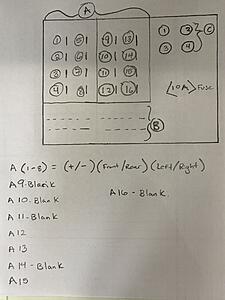 A
1 5 9 13
2 6 10 14
3 7 11 15
4 8 12 16
1 2 C
3 4
10A Fuse
B
A (1-8) = (+/-)(Front/Rear)(Left/Right)
A9-Blank
A10-Blank
A16-Blank
A11-Blank
A12
A13
A14-Blank
A15